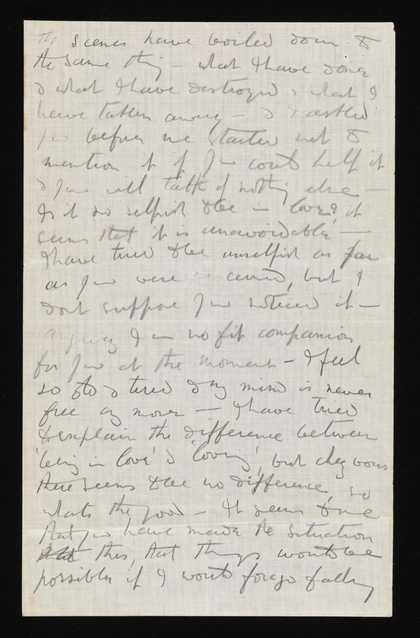 the scenes have boiled down to
the same thing – what I have done
& what I have destroyed & what I
have taken away – & I asked
you before we started not to
mention it if you could help it
& you will talk of nothing else –
Is it so selfish to be in love? it
seems that it is unavoidable –
I have tried to be unselfish as far
as you were concerned, but I
dont suppose you noticed it –
anyway I am no fit companion
for you at the moment – I feel
so old & tired & my mind is never
free any more – I have tried
to explain the difference between
'being in love' & 'loving', but chez vous
there seems to be no difference, so
whats the good – It seems to me
that you have made the situation
this, that things would be
possible if I would forego